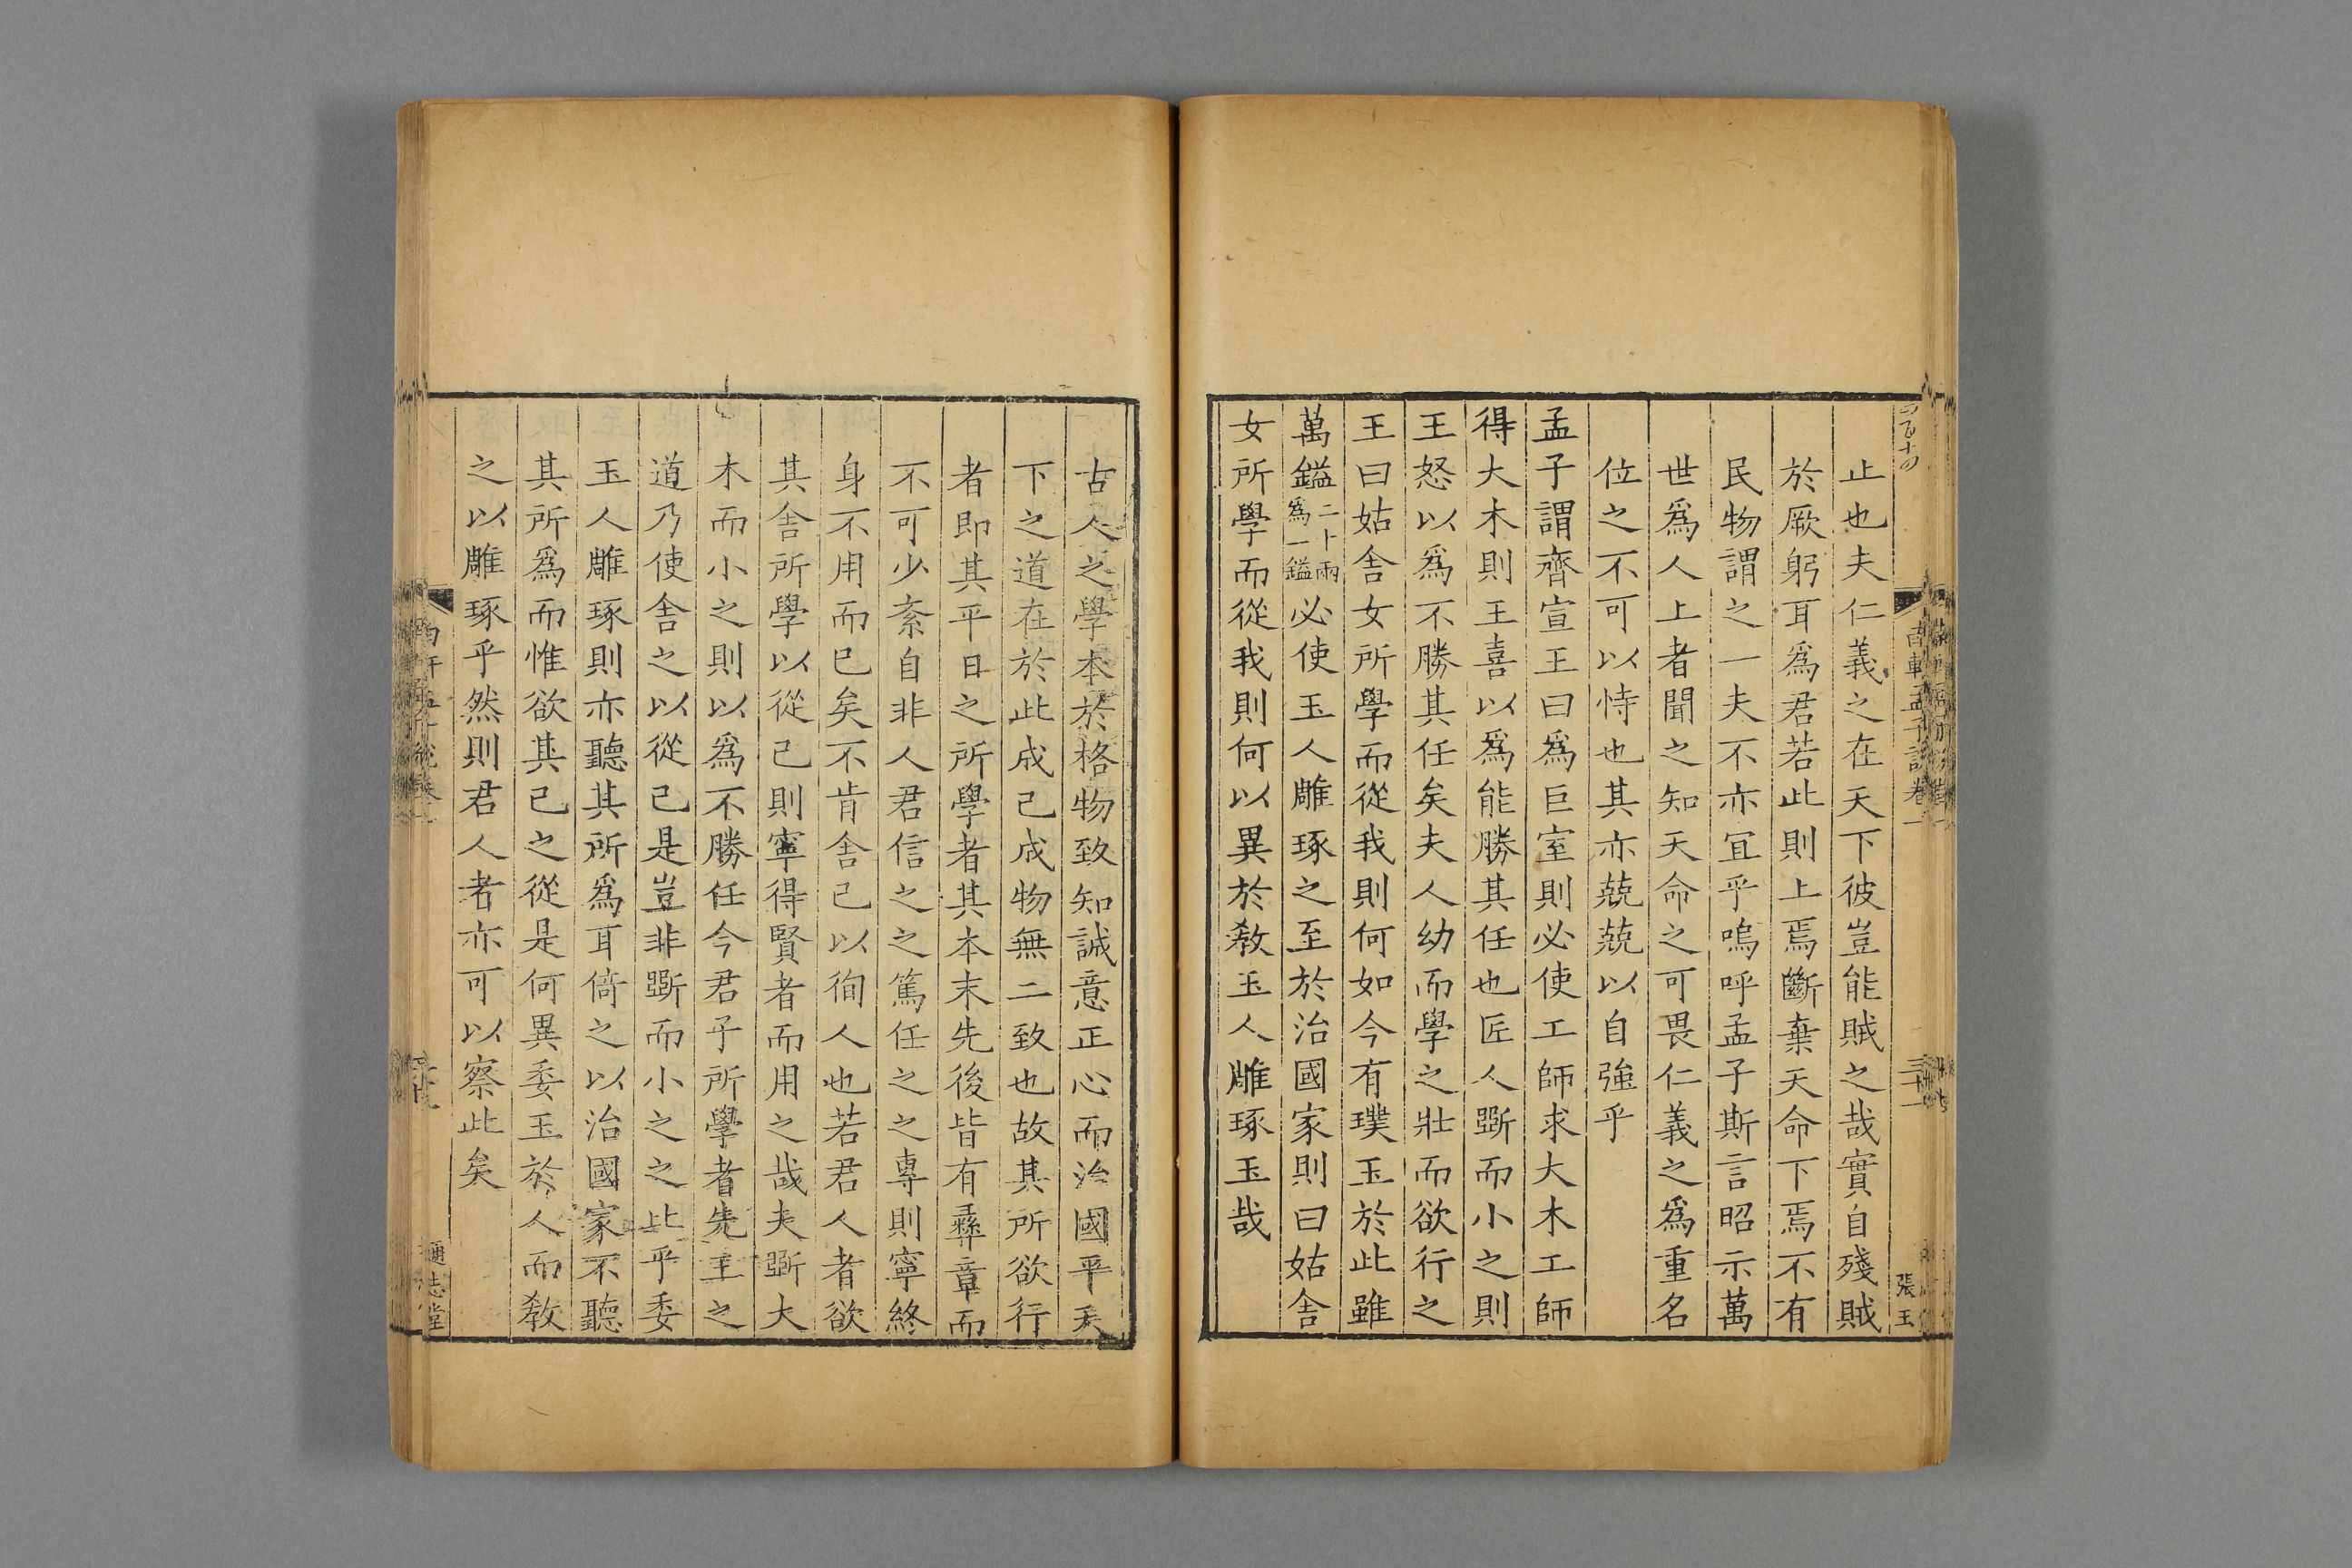 止也夫仁義之在天下彼豈能賊之哉實自殘賊
於厥躬耳爲君若此則上焉斷棄天命下焉不有
民物謂之一夫不亦宜乎嗚呼孟子斯言昭示萬
世爲人上者聞之知天命之可畏仁義之爲重名
位之不可以恃也其亦兢兢以自強乎
孟子謂齊宣王曰爲巨室則必使工師求大木工師
得大木則王喜以爲能勝其任也匠人斲而小之則
王怒以爲不勝其任矣夫人幼而學之壯而欲行之
王曰姑舍女所學而從我則何如今有璞玉於此雖
萬鎰二十兩爲一鎰必使玉人雕琢之至於治國家則曰姑舍
女所學而從我則何以異於敎玉人雕琢玉哉
南軒孟子說卷一
三十一
張玉
古人之學本於格物致知誠意正心而治國平天
下之道在於此成己成物無二致也故其所欲行
者即其平日之所學者其本末先後皆有彞章而
不可少紊自非人君信之之篤任之之專則寧終
身不用而已矣不肯舍己以徇人也若君人者欲
其舍所學以從己則寧得賢者而用之哉夫斲大
木而小之則以爲不勝任今君子所學者先王之
道乃使舍之以從己是豈非斲而小之之比乎委
玉人雕琢則亦聽其所爲耳倚之以治國家不聽
其所爲而惟欲其己之從是何異委玉於人而敎
之以雕琢乎然則君人者亦可以察此矣
通志堂